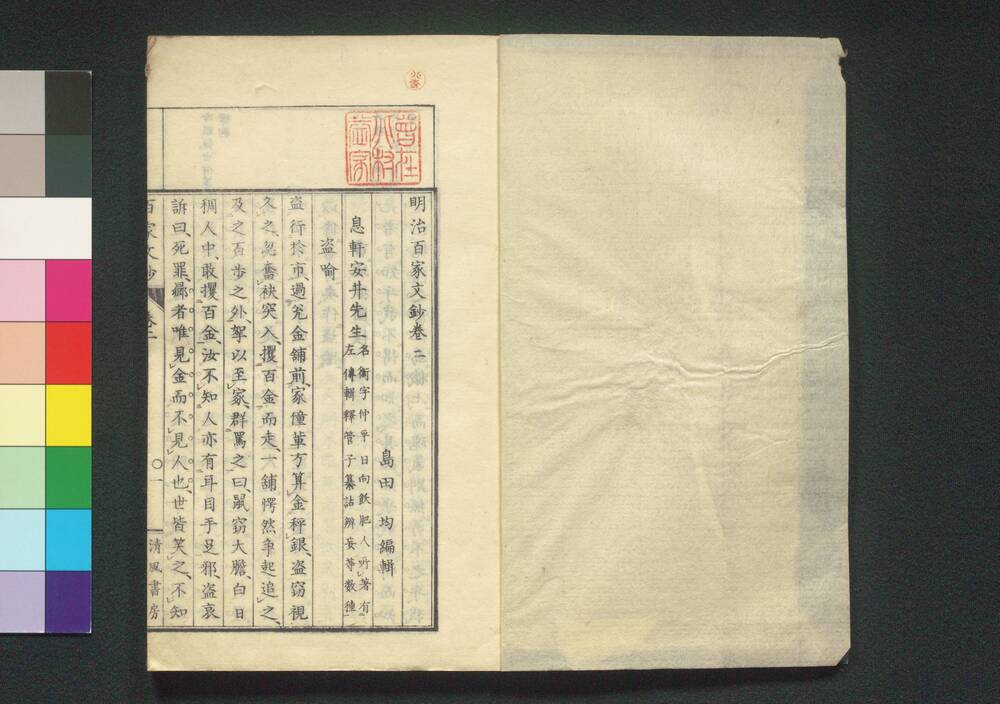 明治百家文鈔卷二
島田均編輯
息軒安井先生
名衡字仲平日向飫肥人所著有
左傳輯釋管子纂詁辨妄等数種
盜喩
盜行於市、過兌金舖前家僮輩方算金秤銀、盜窃視
久之、忽奮袂突入、攫百金而走、一舖愕然争起追之、
及之百步之外、拏以至家、群罵之曰、鼠窃大膽、白日
稠人中、敢攫百金、汝不知人亦有耳目手足邪、盜哀
訴曰、死罪、鄕者唯見金而不見人也、世皆笑之、不知
百家文鈔
卷二
〇一
清風書房